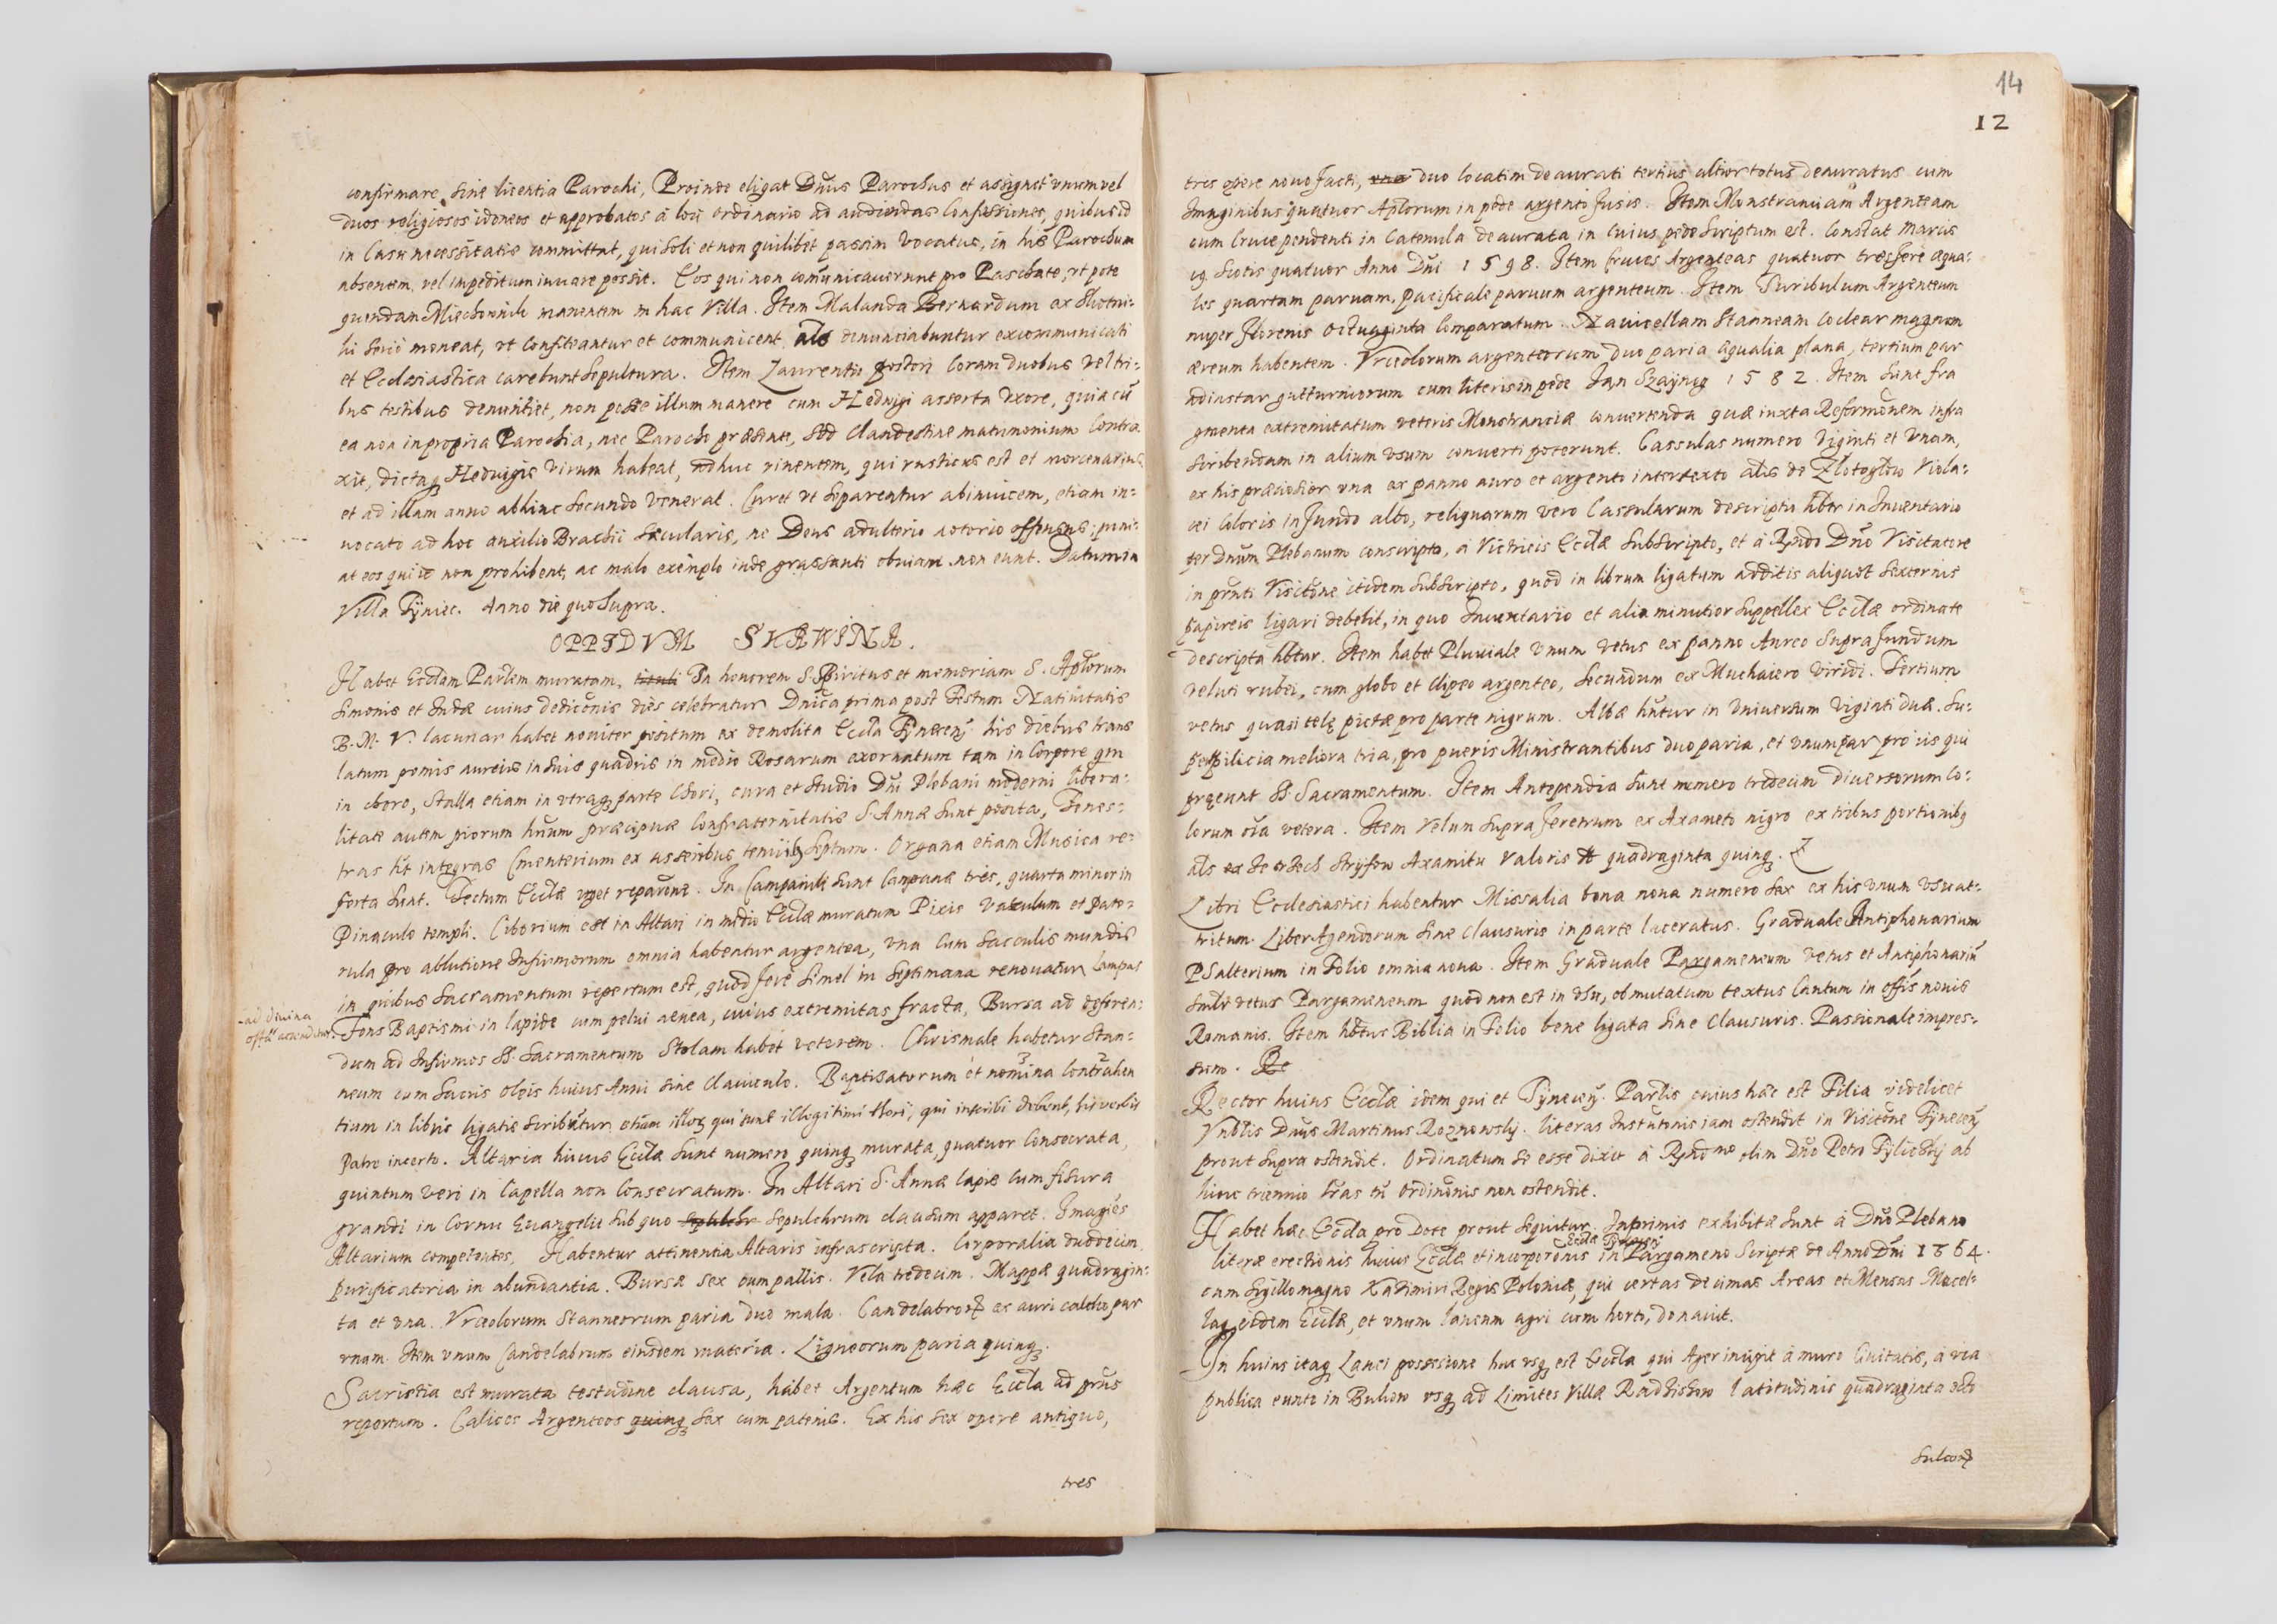 confirmare, sine licentia Parochi, Proinde eligat Dnus Parochus et assignet vnum vel
duos religiosos idoneos et approbatos à loci ordinario ad audiendas Confessiones, quibus id
in Casu necessitatis committat, qui soli et non quilibet passim vocatus, in his Parochum
absentem vel impeditum iuuare possit. Eos qui non comunicauerunt pro Paschate, vt pote
quendam manentem in hac Villa. Item Malanda Bernardum ex
hi serio moneat, vt confiteantur et communicent als denunciabuntur excommunicati
et Ecclesiastica carebunt sepultura. Item Laurentii pestori Coram duobus vel tri=
bus testibus denuntiet, non posse illum manere cum Hedwigi asserta vxore, quia cu
ea non in propria Parochia, nec Parocho præsente, sed Clandestine matrimonium Contra
xit, dictaq Heduigis virum habeat, adhuc viuentem, qui rusticus est et mercenarius
et ad illam anno abhinc secundo venerat. Curet vt separentur abinuicem, etiam in=
uocato ad hoc auxilio Brachii sæcularis, ne Deus adulterio notorio offensus, puni=
at eos qui id non prohibent, ac malo exemplo inde grassanti obuiam non eunt. Datum in
Villa Tÿniec. Anno die quo supra.
OPPIDVM SKAWINA.
Habet Ecclam Parlem muratam, tituli In honorem S. Spiritus et memoriam S. Aplorum
Simonis et Iudæ cuius dediconis dies celebratur Dnica prima post Festum Natiuitatis
B. M. V. lacunar habet nouiter positum ex demolita Eccla Tÿnecen. his diebus trans
latum pomis aureis in suis quadris in medio Rosarum exornatum tam in Corpore qm
in choro, Stalla etiam in vtraq parte Chori, cura et studio Dni Plebani moderni libera=
litate autem piorum hnum præcipuæ Confraternitatis S. Annæ sunt posita, Fenes=
tras ht integras Cmenterium ex asseribus tenuib septum. Organa etiam Musica re=
ferta sunt. Tectum Ecclæ eget reparone. In Campanili sunt Campanæ tres, quarta minor in
Pinaculo templi. Ciborium est in Altari in medio Ecclæ muratum Pixis Vasculum et pate=
rula pro ablutione Infirmorum omnia habentur argentea, vna cum sacculis mundis
in quibus Sacramentum repertum est, quod fere semel in Septimana renouatur Lampas
-ad diuina
offa accenditur.
Fons Baptismi in lapide cum pelui aenea, cuius extremitas fracta, Bursa ad deferen=
dum ad Infirmos SS. Sacramentum Stolam habet veterem. Chrismale habetur Stan=
neum cum Sacris oleis huius Anni sine clauiculo. Baptisatorum et nomina Contrahen
tium in libris ligatis scribūtur etiam illoꝝ qui sunt illegitimi thori, qui inscribi debent, his verbis
Patre incerto. Altaria huius Ecclæ sunt numero quinq murata, quatuor Consecrata,
quintum vero in Capella non Consecratum. In Altari S. Annæ lapis cum fisura
grandi in Cornu Euangelii sub quo sepulchr sepulchrum claudum apparet. Imagies
Altarium competentes. Habentur attinentia Altaris infrascripta. Corporalia duodecim.
purificatoria in abundantia. Bursæ sex cum pallis. Vela tredecim. Mappæ quadragin=
ta et vna. Vrceolorum Stanneorum paria duo mala. Candelabroꝝ ex auri calcho par
vnum. Item vnum Candelabrum eiusdem materiæ. Ligneorum paria quinq.
Sacristia est murata testudine clausa, habet Argentum hæc Eccla ad prūs
repertum. Calices Argenteos quinq sex cum patenis. Ex his sex opere antiquo,
tres
14
12
tres opere nouo facti, vno duo locatim deaurati tertius altior totus deauratus cum
Imaginibus quatuor Aplorum in pede argento fusis. Item Monstranciam Argenteam
cum Cruce pendenti in Catenula deaurata in cuius pede scriptum est. Constat Marcis
19. Scotis quatuor Anno Dni 1598. Item Cruces Argenteas quatuor tres fere æqua=
les quartam paruam, pacificale paruum argenteum. Item Turibulum Argenteum
nuper Florenis octuaginta Comparatum. Nauicellam Stanneam Coclear magnum
æreum habentem. Vrceolorum argenteorum duo paria æqualia plana, tertium par
ad instar gutturniorum cum literis in pede Jan Szaÿnog 1582. Item sunt fra
gmenta extremitatum veteris Monstranciæ conuertenda quæ iuxta Reformonem infra
scribendam in alium vsum conuerti poterunt. Cassulas numero viginti et vnam,
ex his præciosior vna ex panno auro et argento intertexto als de Zlotoglow viola=
cei coloris in fundo albo, reliquarum vero Cassularum descriptio hbtr in Inuentario
per Dnum Plebanum conscripto, à Victricis Ecclæ subscripto, et à Rndo Dno Visitatore
in prnti Visitone itidem subscripto, quod in librum ligatum additis aliquot Sexternis
papireis ligari debebit, in quo Inuentario et alia minutior suppellex Ecclæ ordinate
descripta hbtur. Item habet Pluuiale vnum vetus ex panno Aureo supra fundum
veluti rubei, cum globo et clipeo argenteo, secundum ex Muchaiero viridi. Tertium
vetus quasi telę pictæ pro parte nigrum. Albæ hntur in vniuersum viginti duæ. Su=
perpilicia meliora tria, pro pueris Ministrantibus duo paria, et vnum par pro iis qui
præeunt SS. Sacramentum. Item Antependia sunt numero tredecim diuersorum Co=
lorum oīa vetera. Item velum supra feretrum ex Axameto nigro ex tribus portionibꝫ
als ex Axamitu valoris quadraginta quinq.
Libri Ecclesiastici habentur Missalia bona noua numero sex ex his vnum vsu at=
tritum. Liber Agendorum sine clausuris in parte laceratus. Graduale Antiphonarium
Psalterium in Folio omnia noua. Item Graduale Pargameneum vetus et Antiphonariū
simlr vetus Pargameneum quod non est in vsu, ob mutatum textus Cantum in offis nouis
Romanis. Item hbtur Biblia in Folio bene ligata sine clausuris. Passionale impres=
sum. Re
Rector huius Ecclæ idem qui et Tÿnecen. Parlis cuius hæc est Filia videlicet
Vnblis Dnus Martinus Roznowsky. literas Instutonis iam ostendit in Visitone Tÿnecen
prout supra ostendit. Ordinatum se esse dixit à Rndmo olim Dno Petro Tÿlickÿ ab
hinc triennio lras tn ordinonis non ostendit.
Habet hæc Eccla pro Dote prout sequitur. Inprimis exhibitæ sunt à Dno Plebano
Ecclæ Tÿnecen
literæ erectionis huius Ecclæ et incorporonis in Pargameno scriptæ de Anno Dni 1364.
cum Sigillo magno Kazimiri Regis Poloniæ, qui certas decimas Areas et Mensas Macel=
laq eidem Ecclæ, et vnum laneum agri cum horto, donauit.
In huius itaq Lanei possessione huc vsq est Eccla qui Ager incipit à muro Ciuitatis, à via
publica eundo in Bukow vsq ad Limites Villæ Radzisow latitudinis quadraginta octo
sulcoꝝ